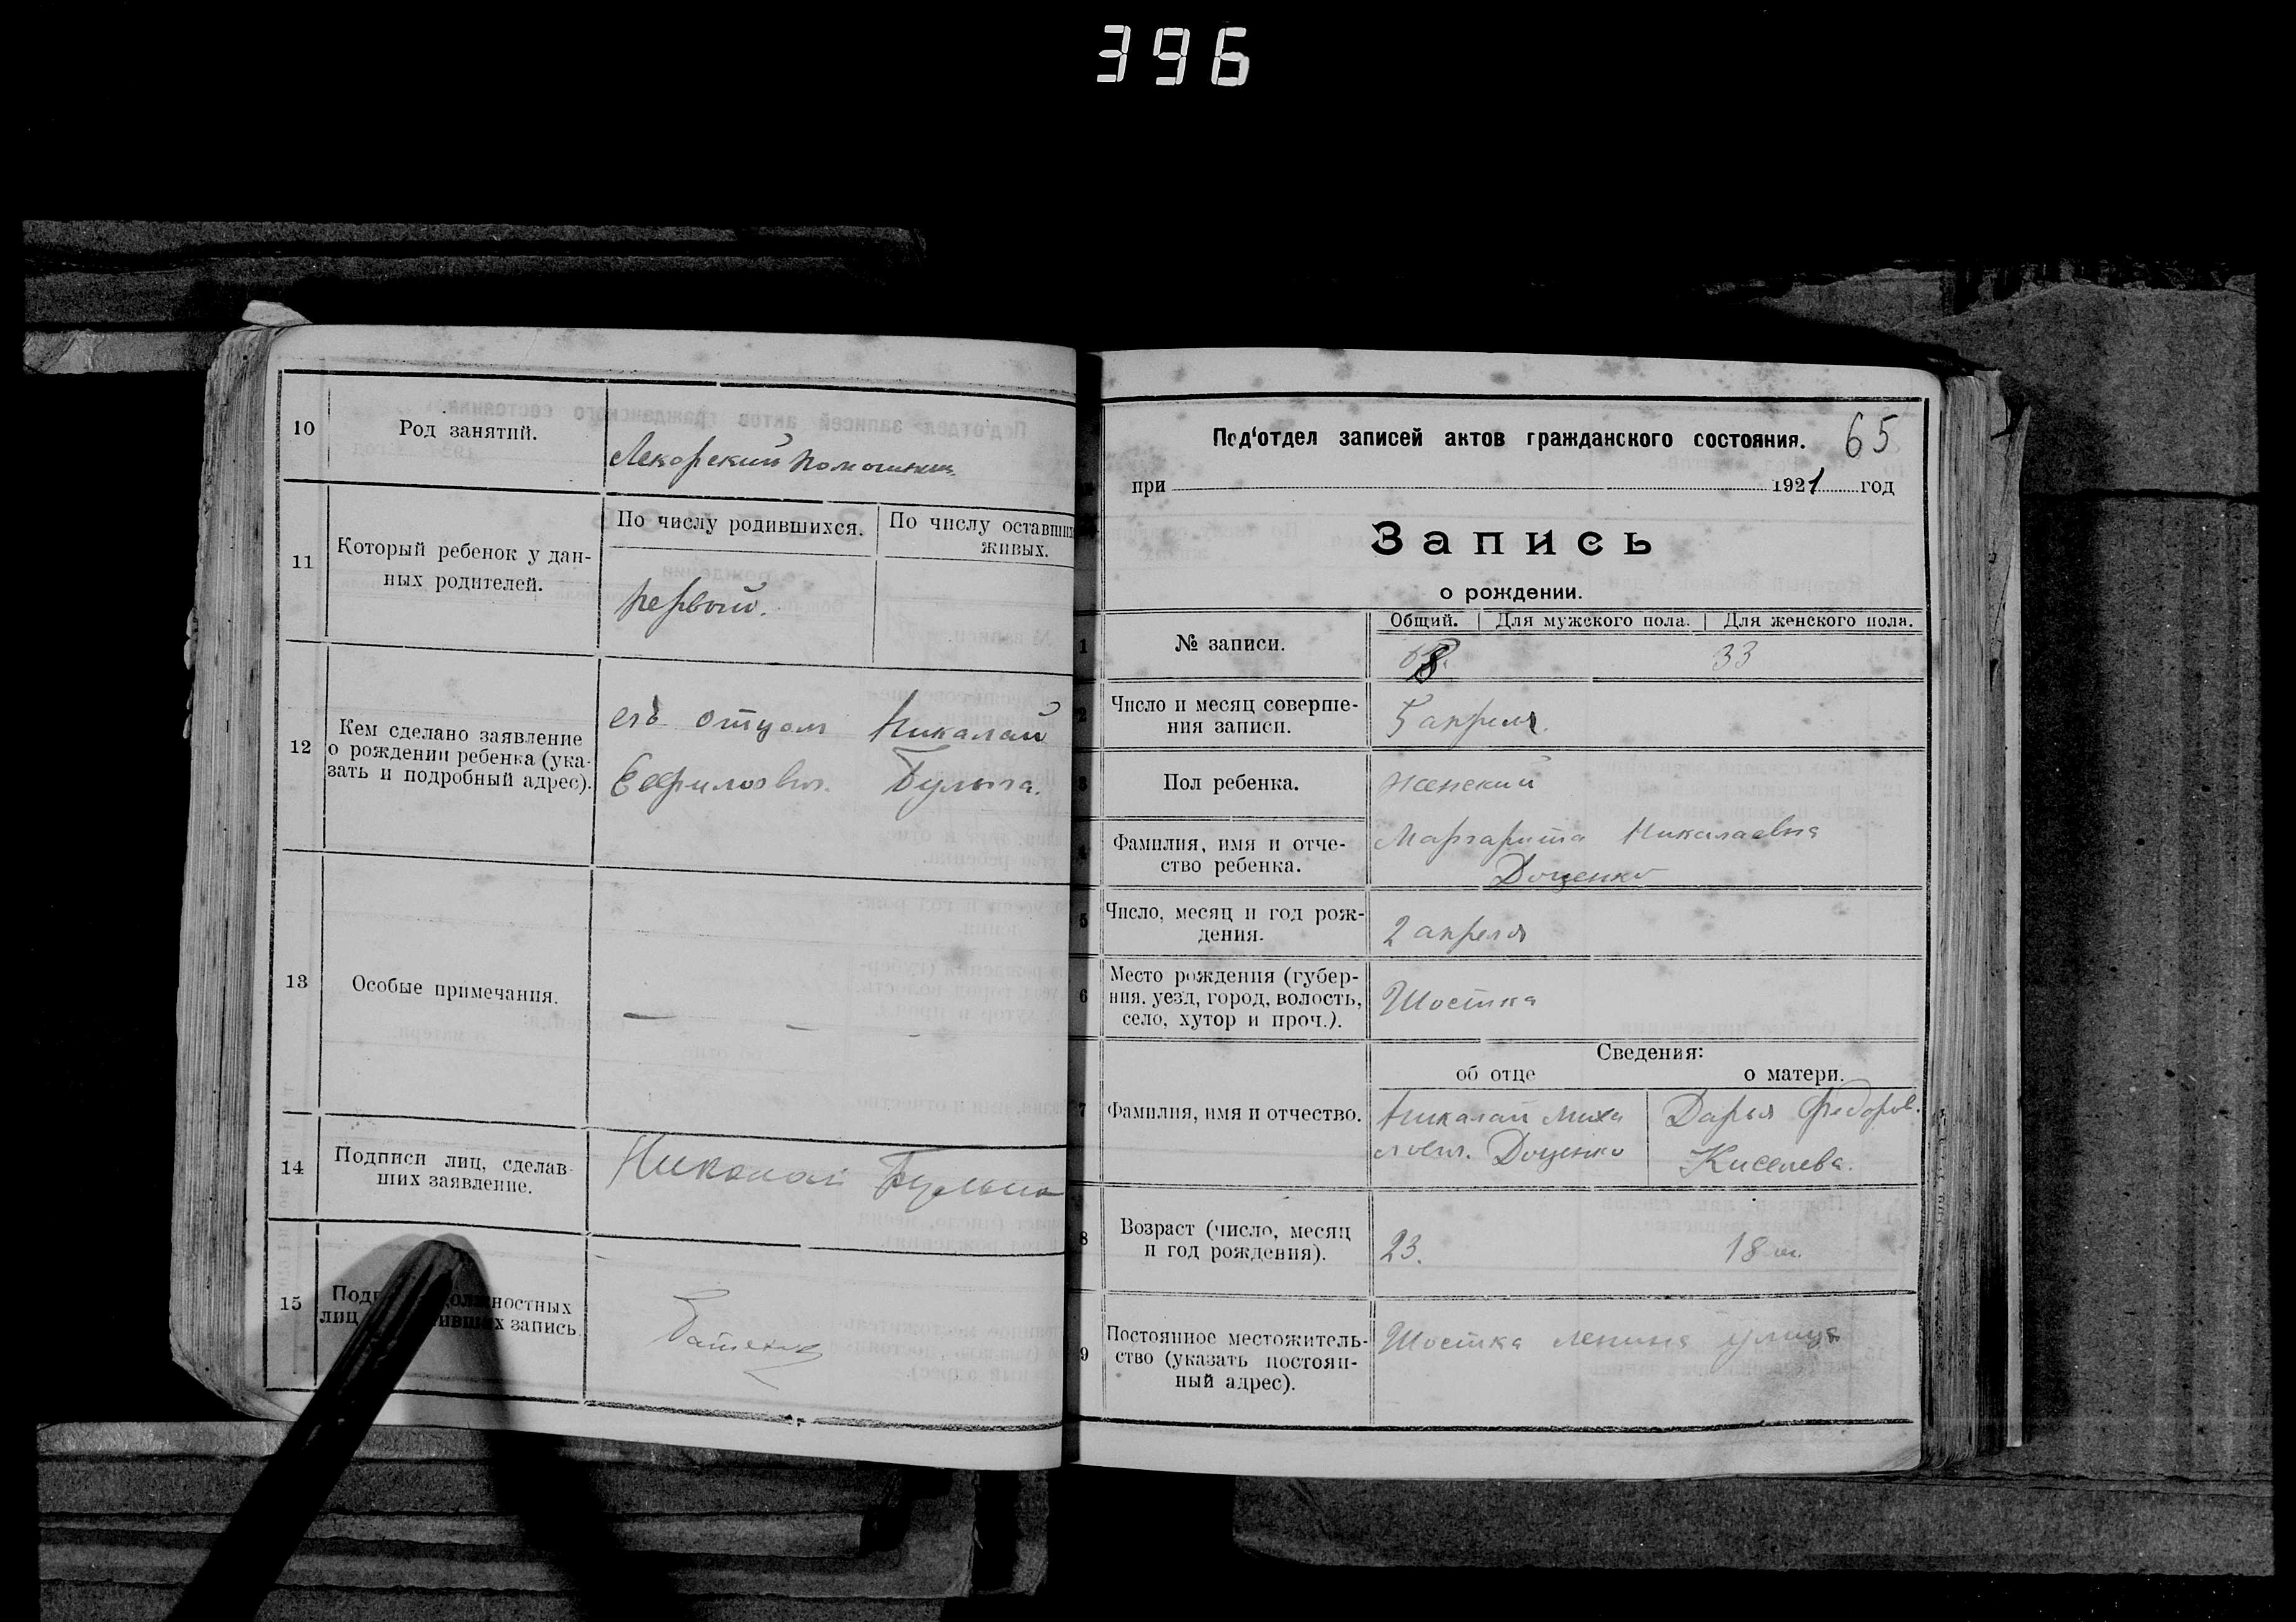 396
10
Род занятий.
Лекарский помощник
11
Который ребенок у дан-
ных родителей.
По числу родившихся.
По числу оставших
живых.
первый.
12
Кем сделано заявление
о рождении ребенка (ука-
зать и подробный адрес).
его отцом Николай
Булыга.
13
Особые примечания.
— — —
14
Подписи лиц, сделав-
ших заявление.
Николай Булыга
15
ностных
лиц
запись
Под'отдел записей актов гражданского состояния.
65
при 1921 год
Запись
о рождении.
Общий. Для мужского пола. Для женского пола.
1
№ записи.
33
2
Число и месяц соверше-
ния записи.
5 апреля.
3
Пол ребенка.
Женский
4
Фамилия, имя и отче-
ство ребенка.
Маргарита Николаевна
Доценко
5
Число, месяц и год рож-
дения.
2 апреля
6
Место рождения (губер-
ния, уезд, город, волость,
село, хутор и проч.).
Шостка
Сведения:
об отце
о матери.
7
Фамилия, имя и отчество.
Николай Миха
Доценко
Дарья Федоров.
Киселева.
8
Возраст (число, месяц
и год рождения).
23.
18
9
Постоянное местожитель-
ство (указать постоян-
ный адрес).
Шостка Ленина улица